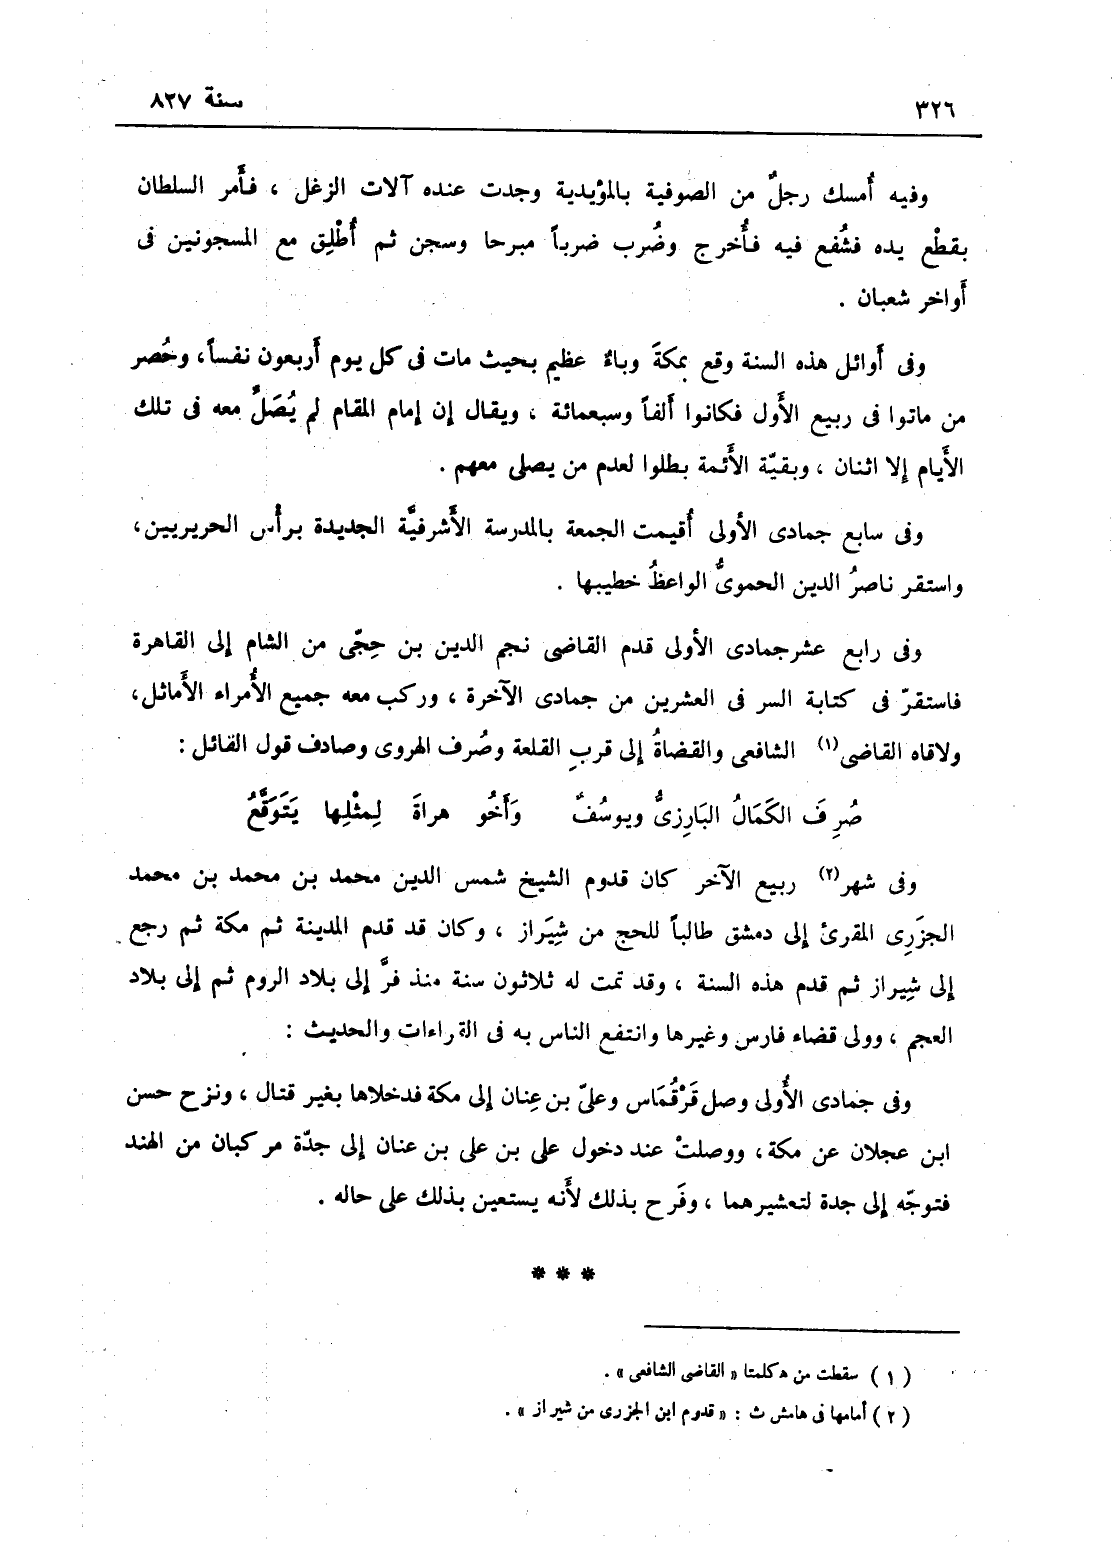 ٣٢٦
سنة ٨٢٧
وفيه أُمسك رجلٌ من الصوفية بالمؤيدية وجدت عنده آلات الزغل ، فأَمر السلطان
بقطْع يده فشُفع فيه فأُخرج وضُرب ضرباً مبرحا وسجن ثم أُطْلِق مع المسجونين فى
أَواخر شعبان .
وفى أَوائل هذه السنة وقع بمكةَ وباءٌ عظيم بحيث مات فى كل يوم أَربعون نفساً، وحُصر
من ماتوا فى ربيع الأَول فكانوا أَلفاً وسبعمائة ، ويقال إن إمام المقام لم يُصَلِّ معه فى تلك
الأَيام إلا اثنان ، وبقيّة الأَئمة بطلوا لعدم من يصلى معهم .
وفى سابع جمادى الأولى أُقيمت الجمعة بالمدرسة الأَشرفيَّة الجديدة برأْس الحريريين،
واستقر ناصرُ الدين الحموىُّ الواعظُ خطيبها .
وفى رابع عشر جمادى الأولى قدم القاضى نجم الدين بن حِجّى من الشام إلى القاهرة
فاستقرّ فى كتابة السر فى العشرين من جمادى الآخرة ، وركب معه جميع الأُمراء الأَماثل،
ولاقاه القاضى(١) الشافعى والقضاةُ إلى قربِ القلعة وصُرف الهروى وصادف قول القائل :
صُرِفَ الكَمَالُ البَارِزىُّ ويوسُفٌ وَأَخُو هراةَ لِمثْلِها يَتَوَقَّعُ
وفى شهر(٢) ربيع الآخر كان قدوم الشيخ شمس الدين محمد بن محمد بن محمد
الجزَرِى المقرئ إلى دمشق طالباً للحج من شِيَراز ، وكان قد قدم المدينة ثم مكة ثم رجع
إلى شِيراز ثم قدم هذه السنة ، وقد تمت له ثلاثون سنة منذ فرَّ إلى بلاد الروم ثم إلى بلاد
العجم ، وولى قضاء فارس وغيرها وانتفع الناس به فى القراءات والحديث :
وفى جمادى الأُولى وصل قَرْقُمَاس وعلىّ بن عِنان إلى مكة فدخلاها بغير قتال ، ونزح حسن
ابن عجلان عن مكة، ووصلتْ عند دخول على بن على بن عنان إلى جدّة مركبان من الهند
فتوجّه إلى جدة لتعشيرهما ، وفَرح بذلك لأَنه يستعين بذلك على حاله .
* * *
( ١ ) سقطت من ھ كلمتا « القاضى الشافعى » .
( ٢ ) أمامها فى هامش ث : « قدوم ابن الجزرى من شيراز » .